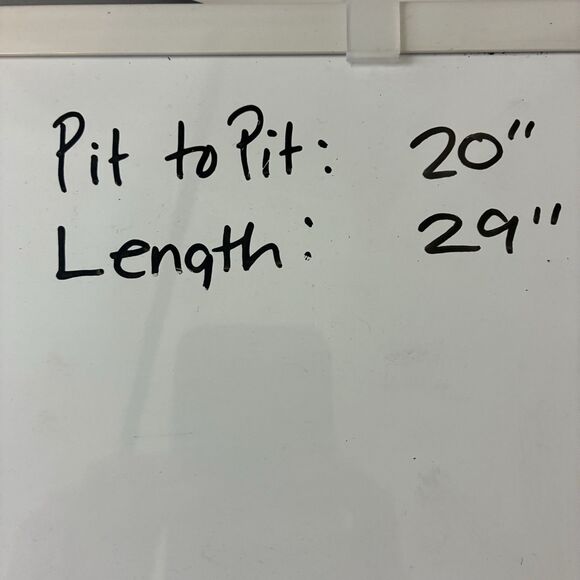 Pit to Pit: 20"
Length: 29"